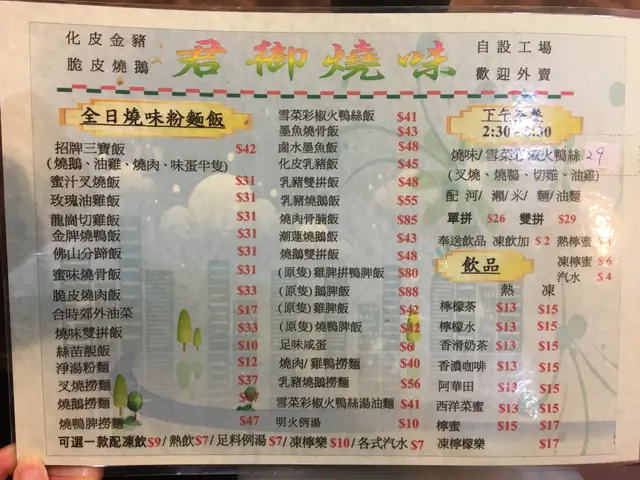 化皮金豬
脆皮燒鵝
君御燒味
自設工場
歡迎外賣
全日燒味粉麵飯
招牌三寶飯 $42
(燒鵝、油雞、燒肉、味蛋半隻)
蜜汁叉燒飯 $31
玫瑰油雞飯 $31
龍崗切雞飯 $31
金牌燒鴨飯 $31
佛山分蹄飯 $31
蜜味燒骨飯 $31
脆皮燒肉飯 $33
合時郊外油菜 $17
燒味雙拼飯 $33
絲苗靚飯 $10
淨湯粉麵 $12
叉燒撈麵 $37
燒鵝撈麵
燒鴨脾撈麵 $47
雪菜彩椒火鴨絲飯 $41
墨魚燒骨飯 $43
鹵水墨魚飯 $48
化皮乳豬飯 $45
乳豬雙拼飯 $48
乳豬燒鵝飯 $55
燒肉骨腩飯 $85
潮蓮燒鵝飯 $43
燒鵝雙拼飯 $48
(原隻)雞脾拼鴨脾飯 $80
(原隻)鵝脾飯 $88
(原隻)雞脾飯 $42
(原隻)燒鴨脾飯 $42
足味咸蛋 $6
燒肉/雞鴨撈麵 $40
乳豬燒鵝撈麵 $56
雪菜彩椒火鴨絲湯油麵 $41
明火例湯 $10
下午茶餐
2:30-5:30
燒味/雪菜彩椒火鴨絲 29
(叉燒、燒鴨、切雞、油雞)
配河/瀨/米/麵/油麵
單拼 $26 雙拼 $29
奉送飲品 凍飲加$2 熱檸蜜
凍檸蜜 $6
汽水 $4
飲品
熱 凍
檸檬茶 $13 $15
檸檬水 $13 $15
香滑奶茶 $13 $15
香濃咖啡 $13 $15
阿華田 $13 $15
西洋菜蜜 $13 $15
檸蜜 $15 $17
凍檸檬樂 $17
可選一款配凍飲$9/熱飲$7/足料例湯$7/凍檸樂$10/各式汽水$7